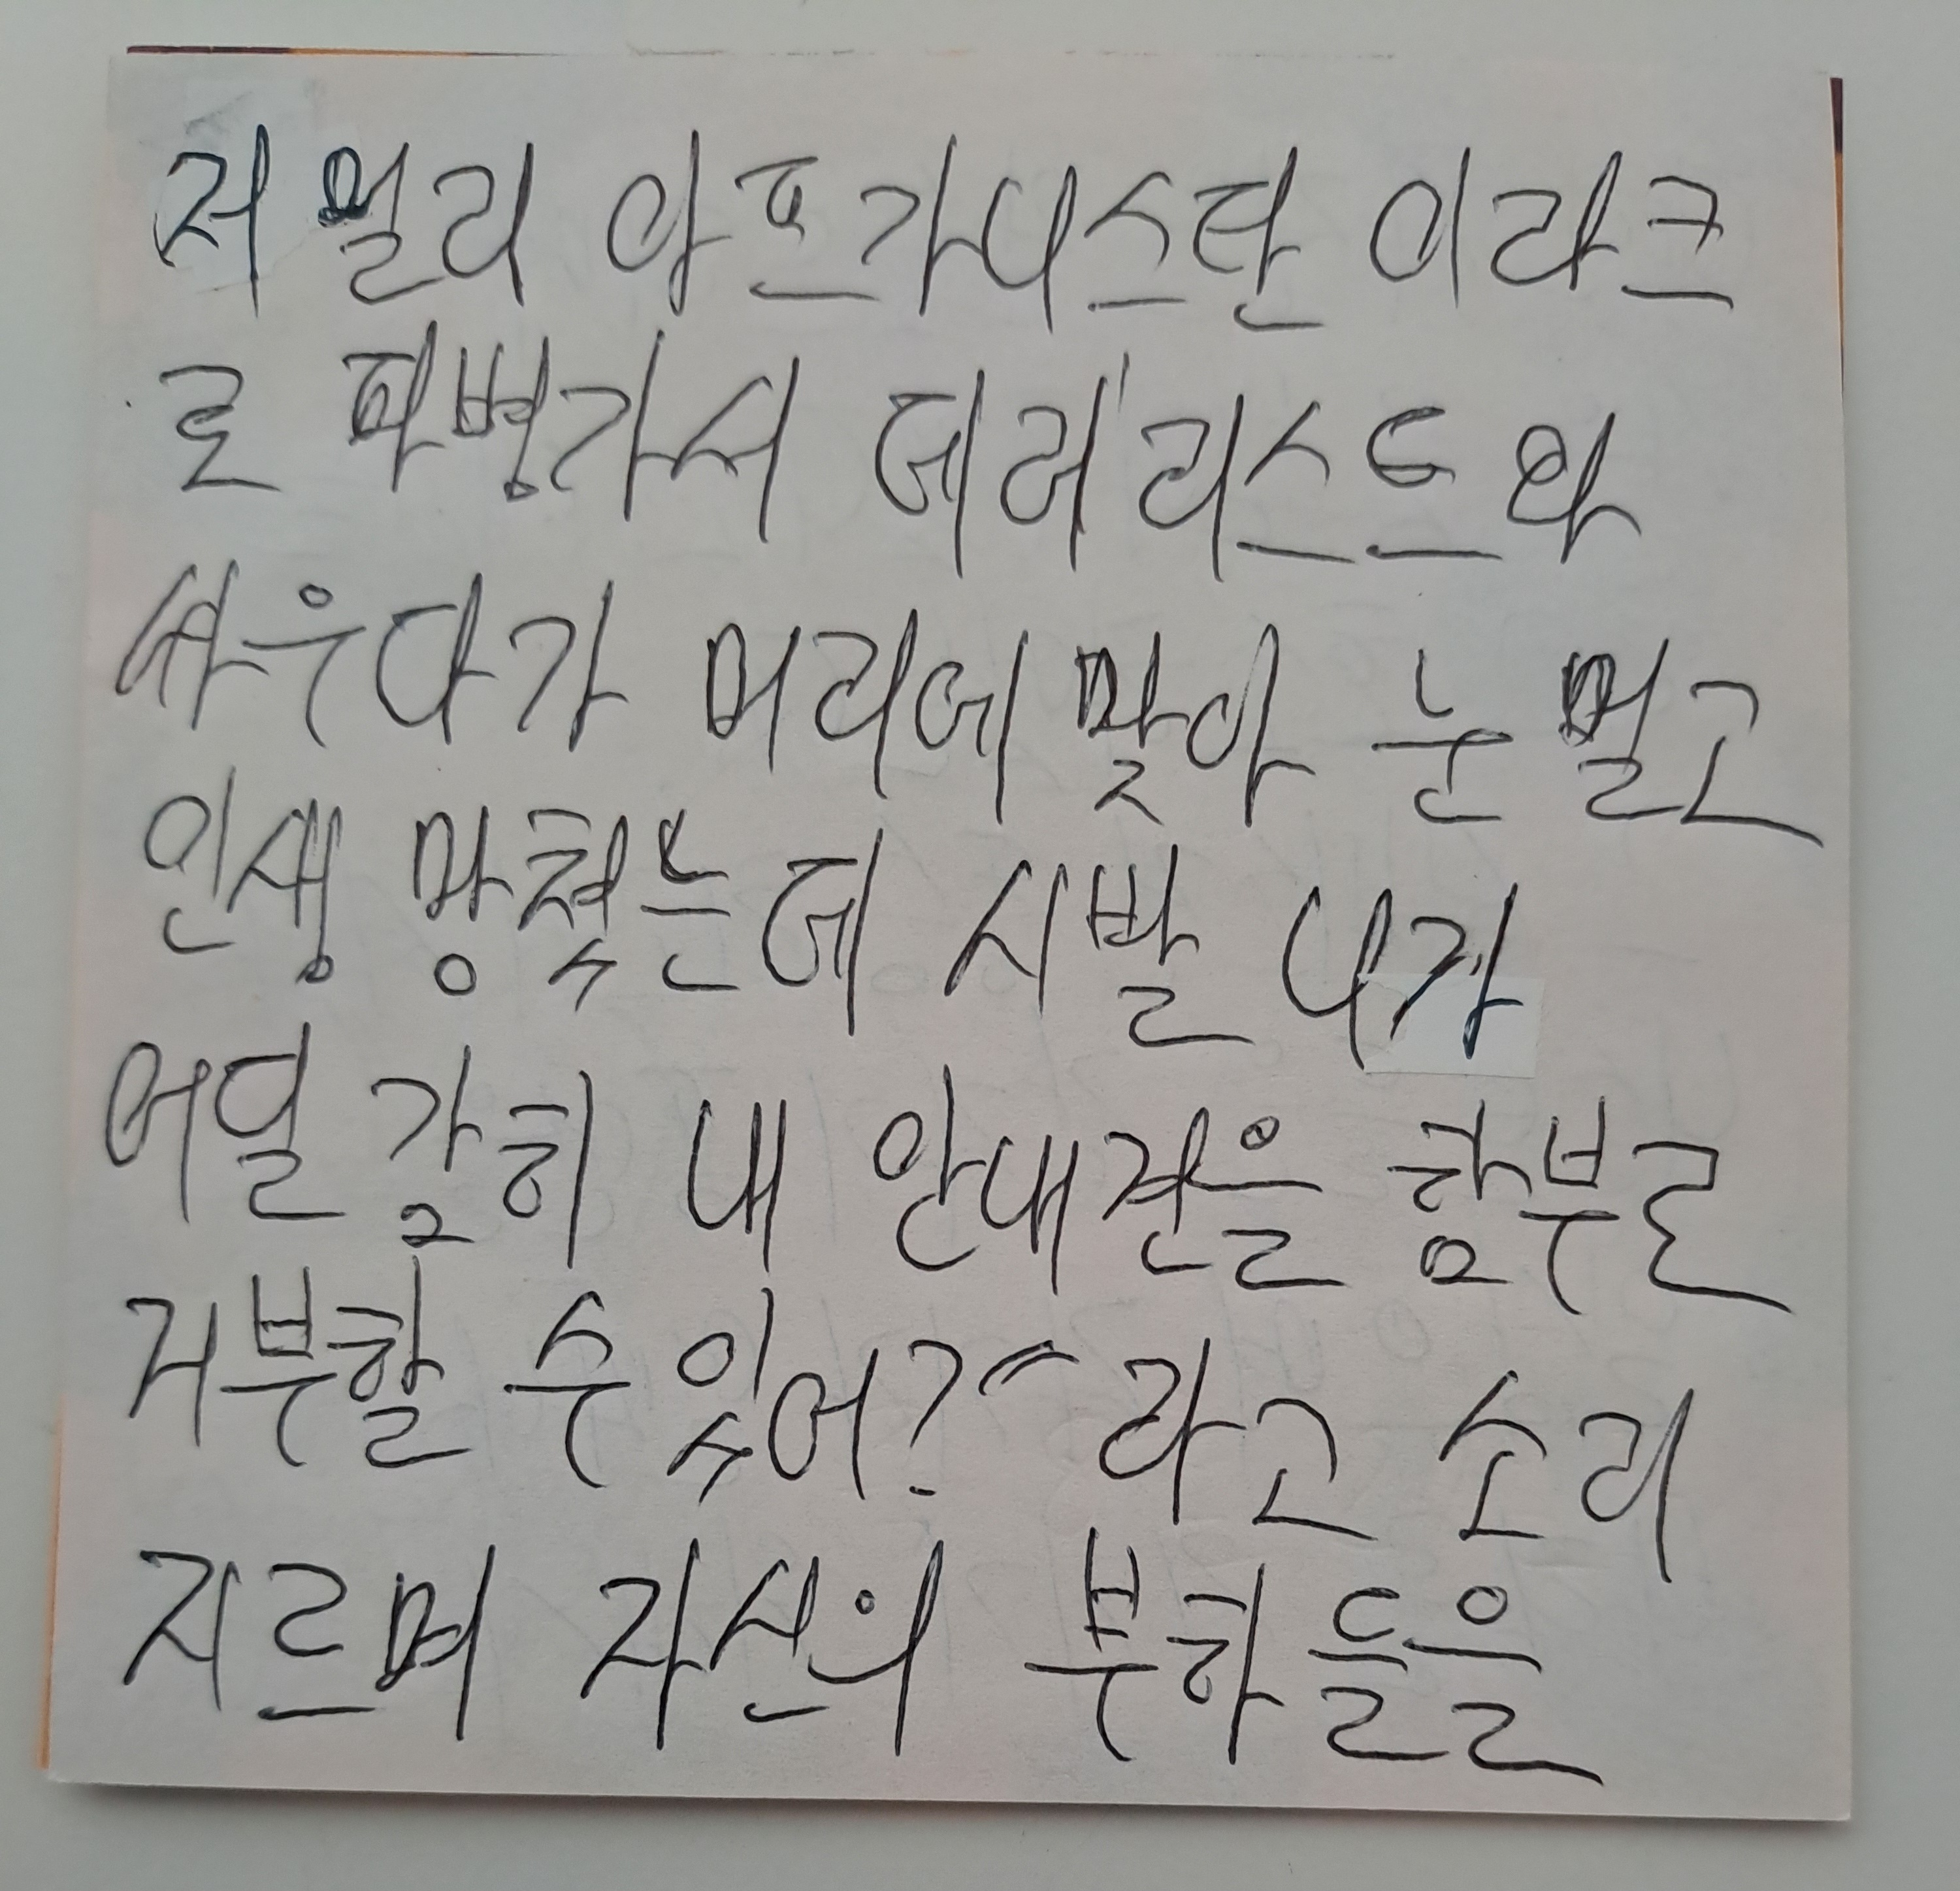 저 멀리 아프가니스탄 이라크
로 파병가서 테러리스트와
싸우다가 머리에 맞아 눈 멀고
인생 망쳤는데 시발 니가
어딜 감히 내 안내견을 함부로
거부할 수 있어?" 라고 소리
지르며 자신의 부하들을